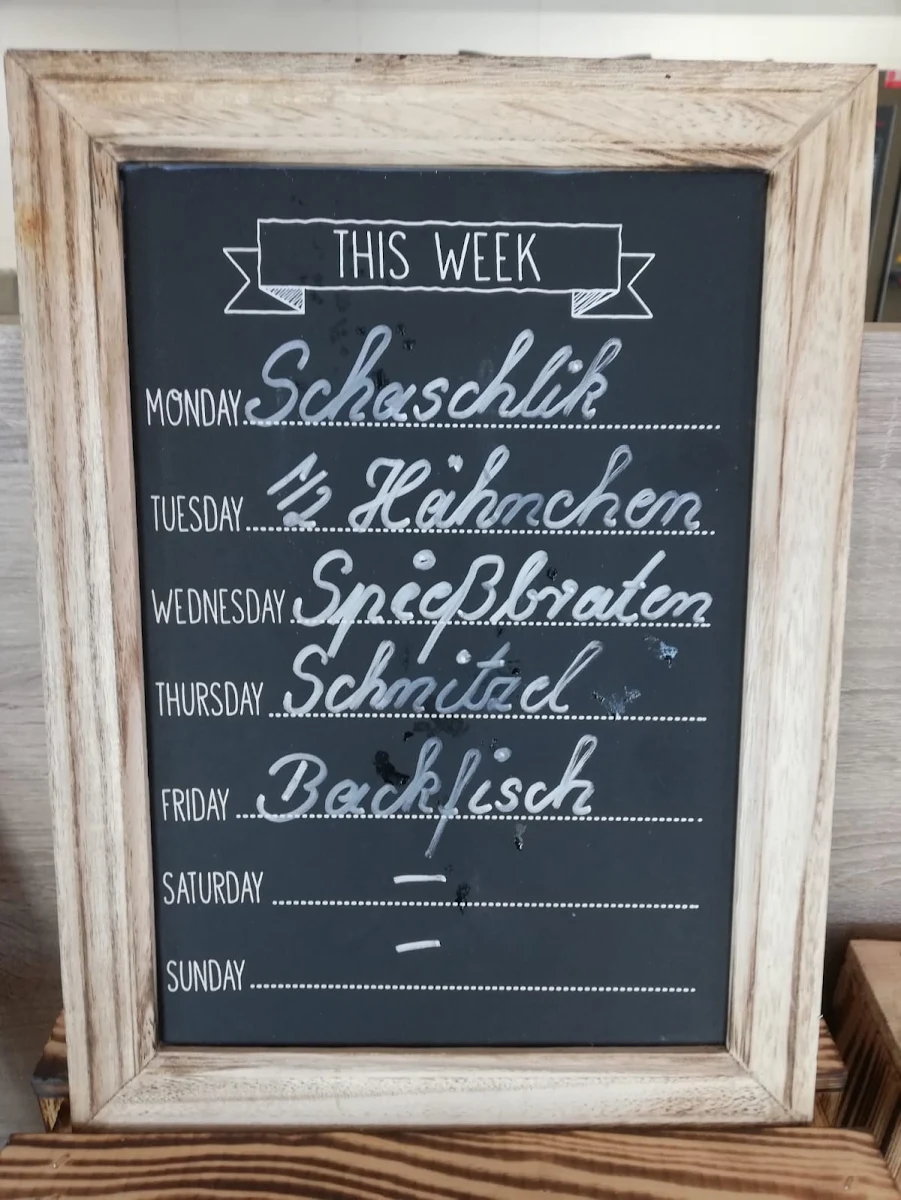 THIS WEEK
MONDAY Schaschlik
TUESDAY 1/2 Hähnchen
WEDNESDAY Spießbraten
THURSDAY Schnitzel
FRIDAY Backfisch
SATURDAY –
SUNDAY –